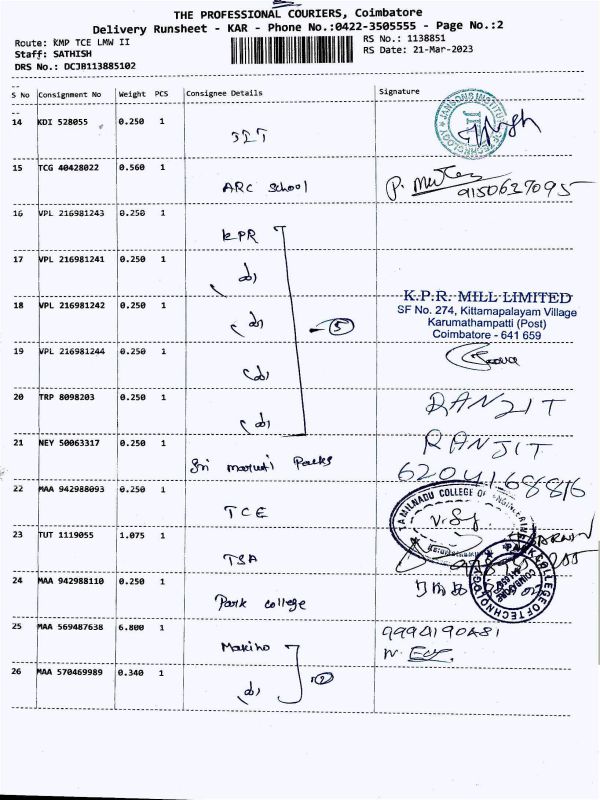 THE PROFESSIONAL COURIERS, Coimbatore
Delivery Runsheet - KAR - Phone No.:0422-3505555 - Page No.:2
Route: KMP TCE LMW II RS No.: 1138851
Staff: SATHISH RS Date: 21-Mar-2023
DRS No.: DCJB113885102
S No Consignment No Weight PCS Consignee Details Signature
14 KDI 528055 0.250 1
JIT
JANSONS INSTITUTE OF TECHNOLOGY
15 TCG 40428022 0.560 1
ARC School
9150637095
16 VPL 216981243 0.250 1
KPR
17 VPL 216981241 0.250 1
18 VPL 216981242 0.250 1
5
K.P.R. MILL LIMITED
SF No. 274, Kittamapalayam Village
Karumathampatti (Post)
Coimbatore - 641 659
19 VPL 216981244 0.250 1
20 TRP 8098203 0.250 1
RANJIT
21 NEY 50063317 0.250 1
Sri maruti Packs
RANJIT
6204168816
22 MAA 942988093 0.250 1
TCE
TAMILNADU COLLEGE OF ENGINEERING
23 TUT 1119055 1.075 1
TSA
24 MAA 942988110 0.250 1
Park college
PARK COLLEGE OF TECHNOLOGY
25 MAA 569487638 6.800 1
Makino
9994190481
26 MAA 570469989 0.340 1
2